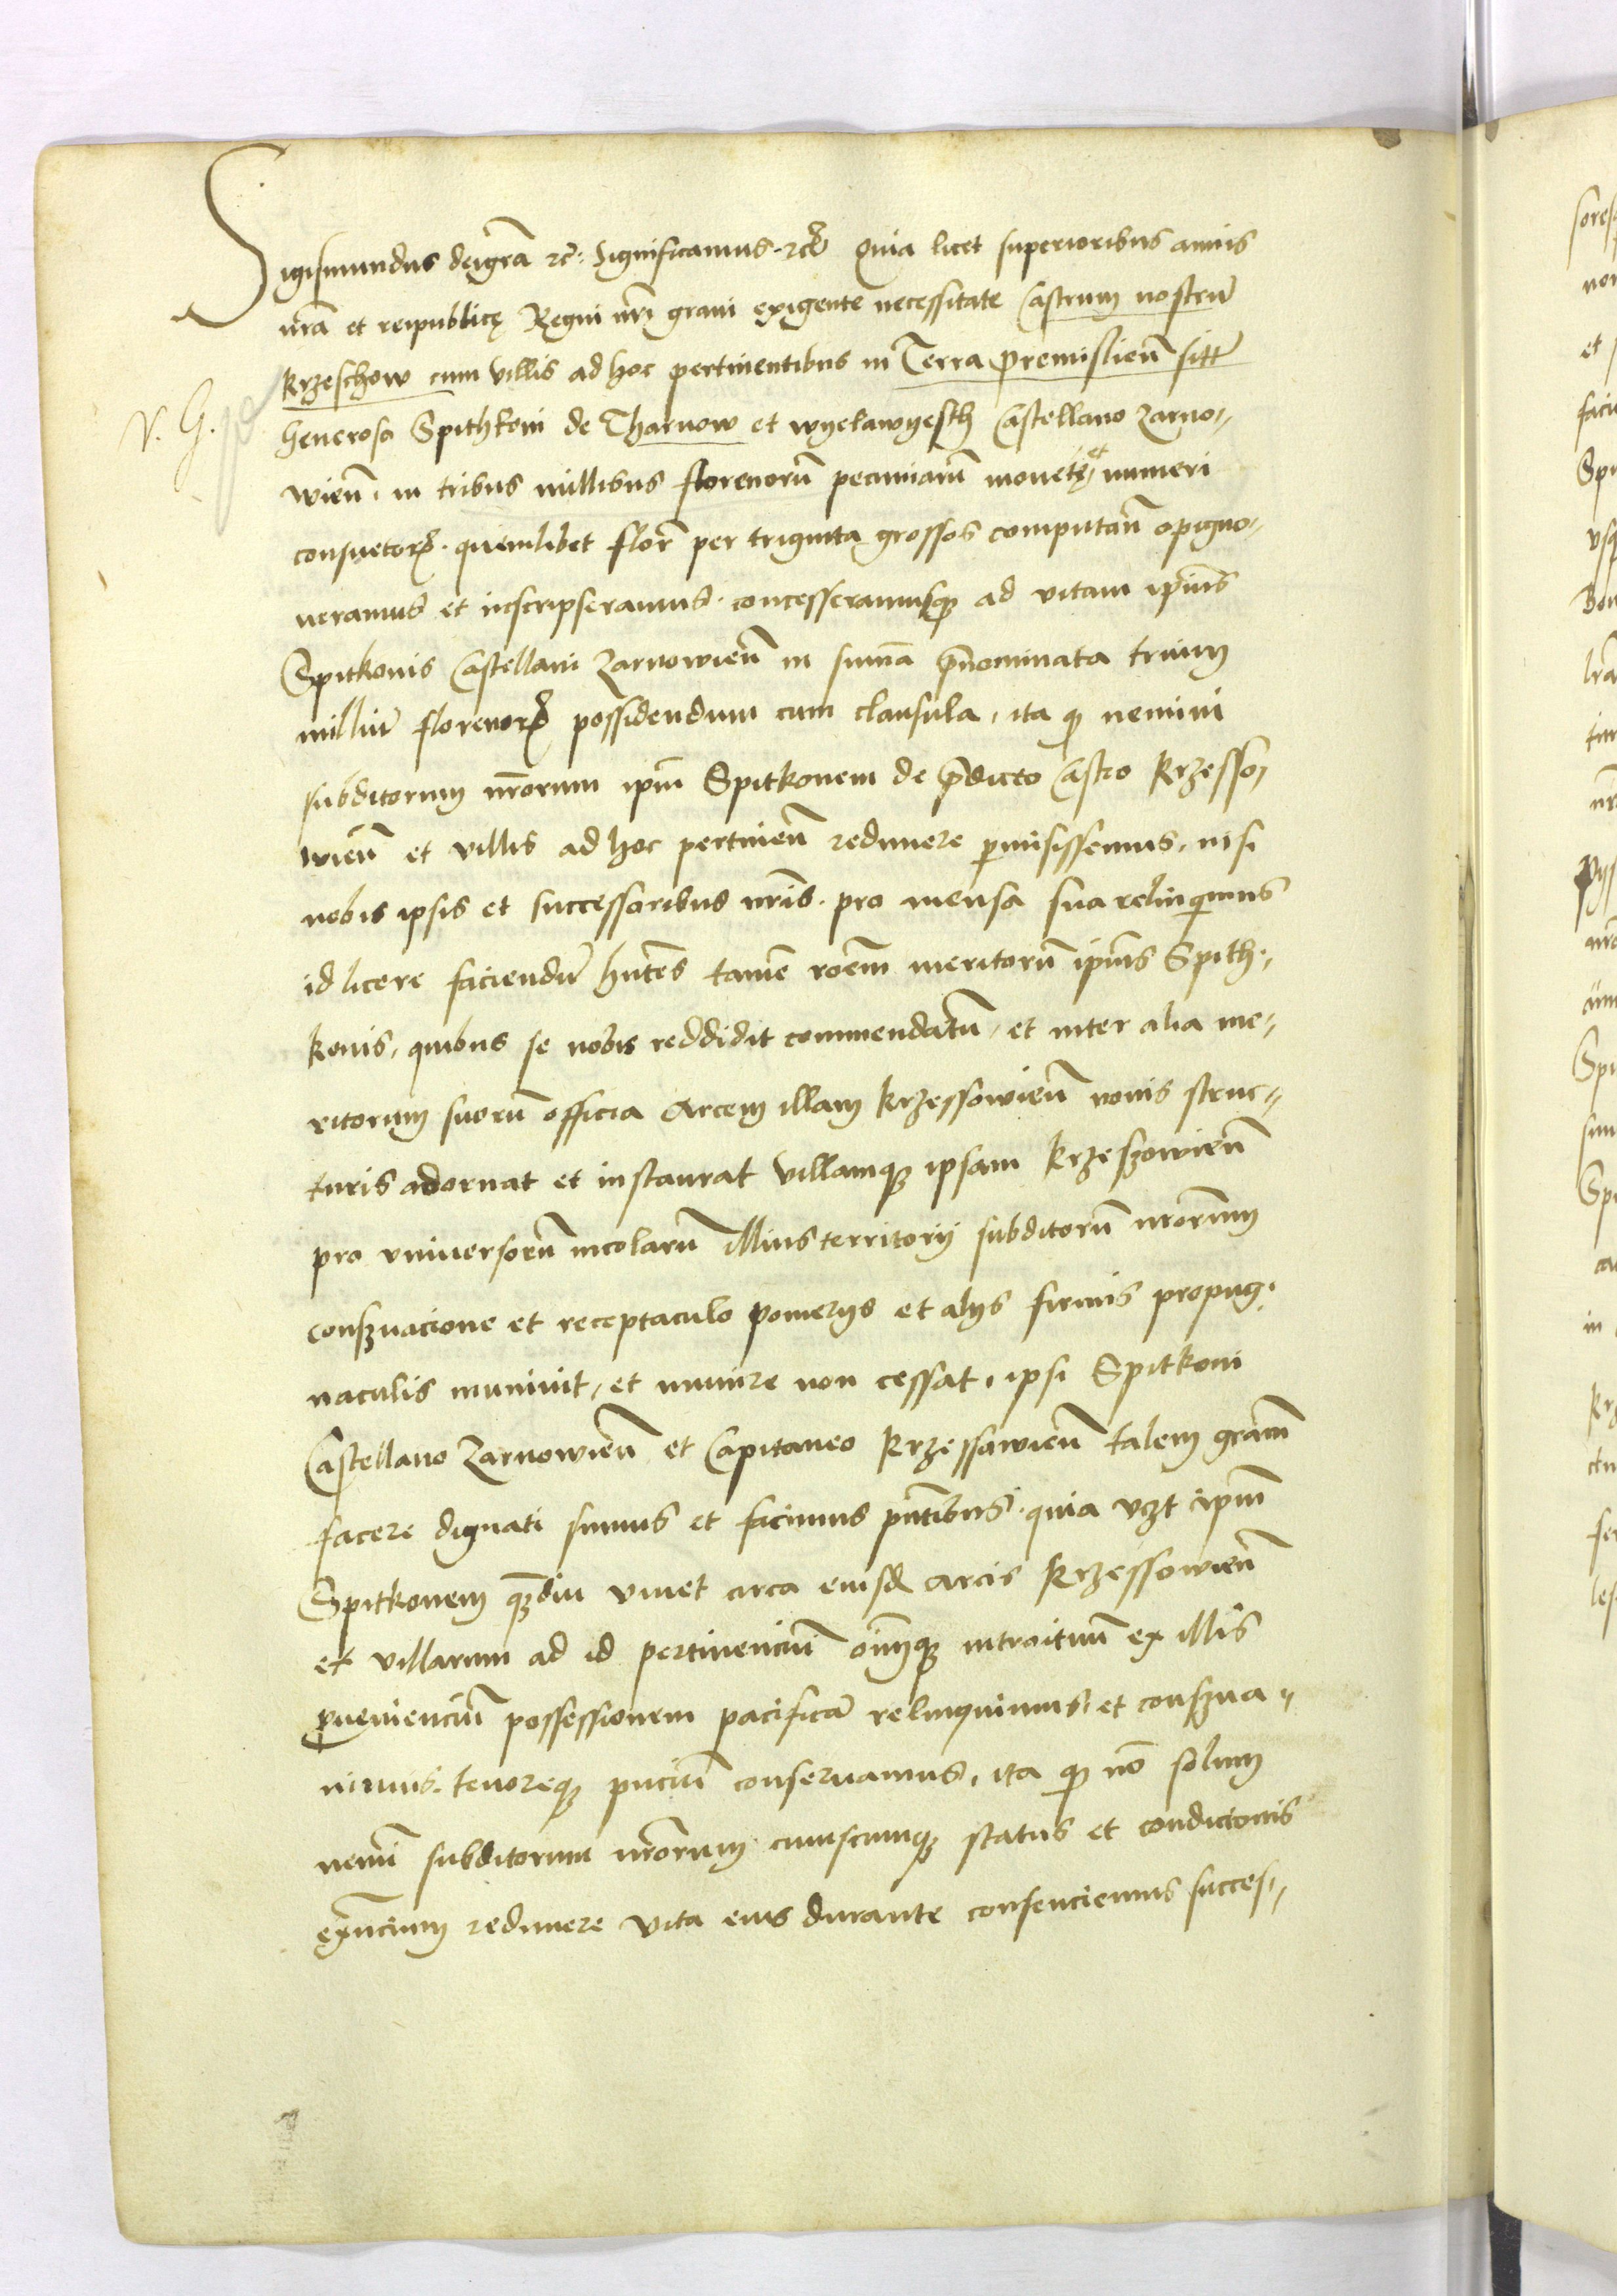 Sigismundus deigrã ꝛc̃: Significamus ꝛcͣ Quia licet superioribus annis
nrã et reipublicę Regni nrĩ graui exigente necessitate Castrum nostrũ
Krzeschow cum villis ad hoc pertinentibus in Terra Premislieñ sitũ
V. G.
Generoso Spithkoni de Tharnow et wyelawyesch Castellano Zarno-
wieñ. in tribus millibus florenorũ pecuniarũ monetę et numeri
consuetorꝝ. quemlibet floR̃ per triginta grossos computañ opigno-
ueramus et inscripseramus. concesseramusqꝫ ad vitam ip̃ius
Spitkonis Castellani Zarnowieñ in sum̃a p̃nominata trium
milliũ florenorꝝ possidendum cum clausula, ita qꝫ nemini
subditorum nr̃orum ip̃m Spitkonem de p̃dicto Castro Krzesso-
wieñ et villis ad hoc pertineñ redimere ꝑmisissemus, nisi
nobis ipsis et successoribus nrĩs. pro mensa sua relinquimus
id licere faciendũ hñtes tamẽ roẽm meritorũ ip̃ius Spith-
konis, quibus se nobis reddidit commendatũ, et inter alia me-
ritorum suorũ officia Arcem illam Krzessowieñ nouis struc-
turis adornat et instaurat villamqꝫ ipsam Krzeszowieñ
pro vniuersorũ incolarũ illius territorij subditorũ nrõrum
conßuacione et receptaculo pomerijs et alijs firmis propug-
naculis muniuit, et munire non cessat, ipsi Spitkoni
Castellano Zarnowieñ et Capitaneo Krzessawieñ talem grãm
facere dignati sumus et facimus pñtibus. quia vꝫt ip̃m
Spitkonem qꝫdiu viuet circa eiusd Arcis Krzessowieñ
et villarum ad id pertinenciũ oĩmqꝫ introituũ ex illis
ꝓuenienciũ possessionem pacificã relinquimus et conßua-
uimus. tenoreqꝫ pñciũ conseruamus, ita qꝫ nõ solum
nemĩ subditorum nrõrum cuiuscumqꝫ status et condictionis
exñcium redimere vita eius durante consenciemus succes-